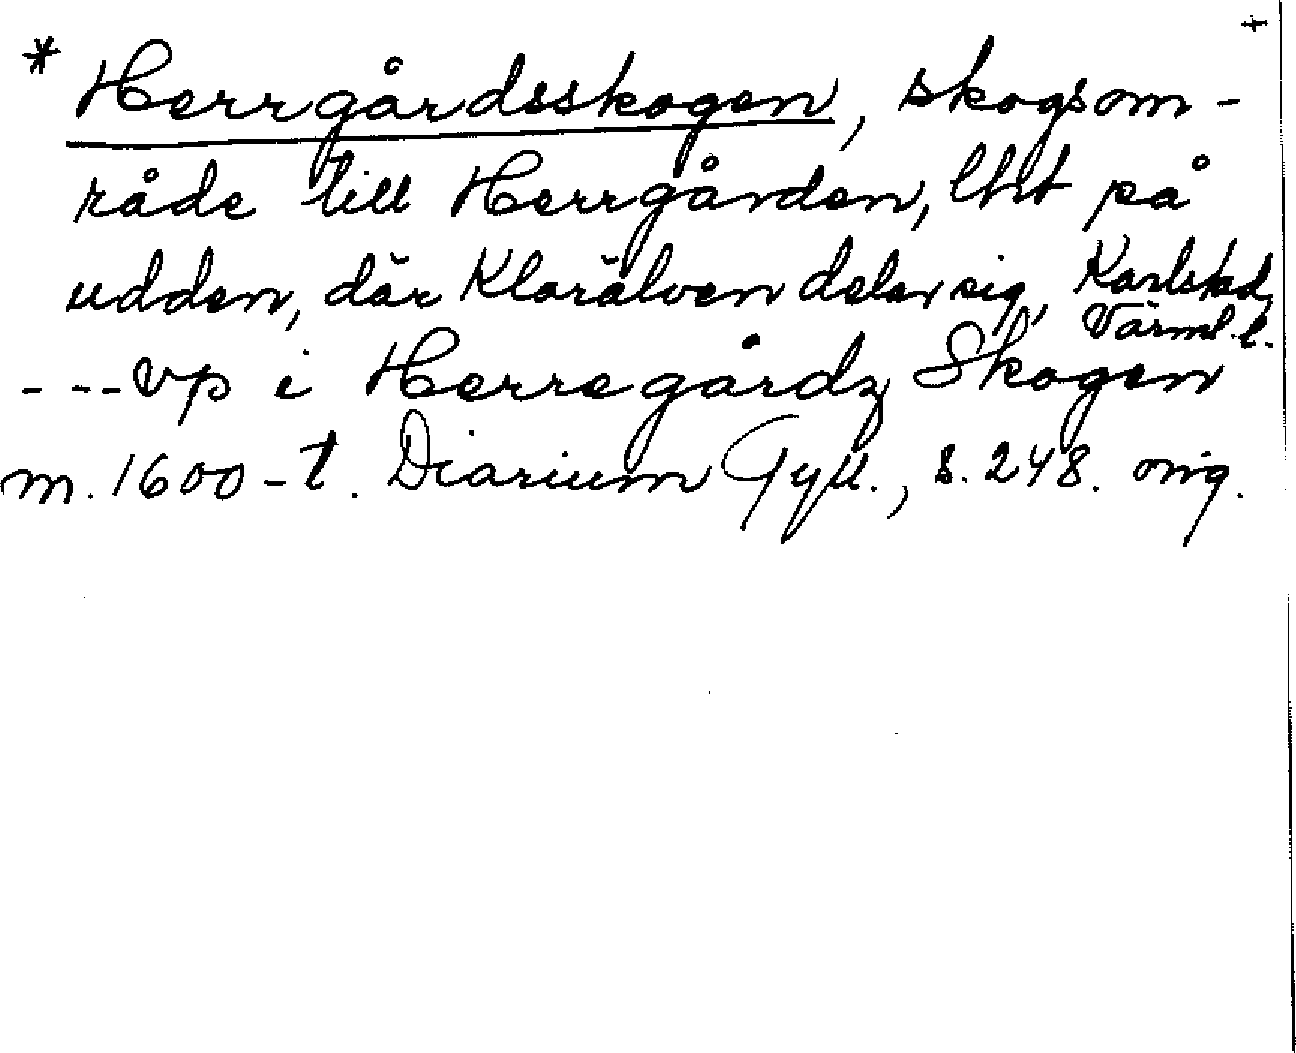 * Herrgårdsskogen, skogsom- +
råde till Herrgården, lht på
udden, där Klarälven delar sig, Karlstad,
Värml. l.
---vp i Herregårdz Skogen
m. 1600-t. Diarium Gyll., s. 248. orig.